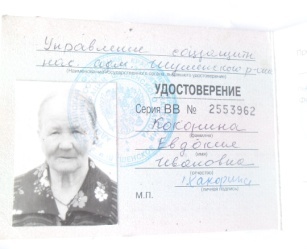 Управление соцзащиты
нас. адм. Шушенского р-на
(Наименование государственного органа, выдавшего удостоверение)
УДОСТОВЕРЕНИЕ
Серия ВВ № 2553962
Кокорина
(фамилия)
Евдокия
(имя)
Ивановна
(отчество)
(личная подпись)
М.П.